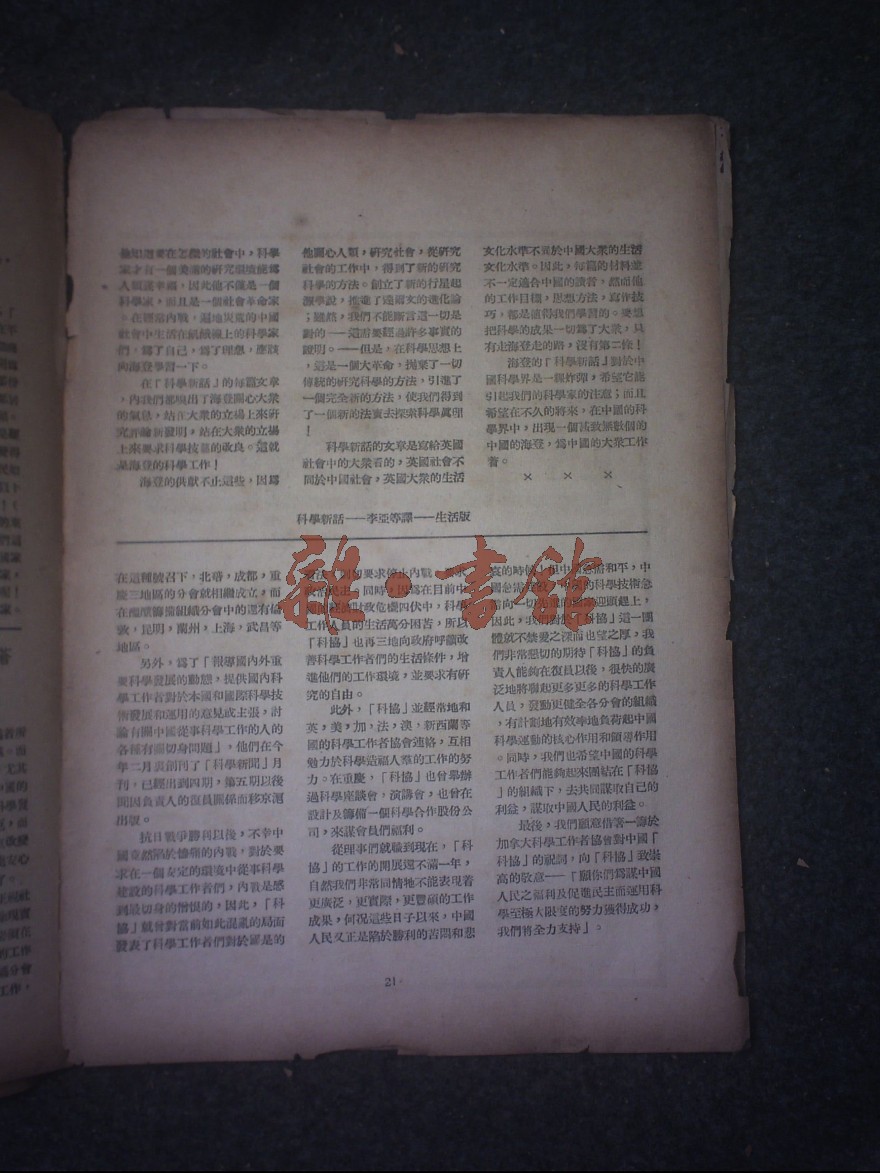 他知道要在怎樣的社會中，科學
家才有一個美滿的研究環境使爲
人類謀幸福，因此他不僅是一個
科學家，而且是一個社會革命家
。在經常內戰，遍地災荒的中國
社會中生活在飢餓線上的科學家
們，爲了自己，爲了理想，應該
向海登學習一下。
在「科學新話」的每篇文章
，內我們都嗅出了海登關心大衆
的氣息，站在大衆的立場上來研
究評論新發明，站在大衆的立場
上來要求科學技藝的改良。這就
是海登的科學工作！
海登的供獻不止這些，因爲
他關心人類，研究社會，從研究
社會的工作中，得到了新的研究
科學的方法。創立了新的行星起
源學說，推進了達爾文的進化論
；雖然，我們不能斷言這一切是
對的——這需要經過許多事實的
證明。——但是，在科學思想上
，這是一個大革命，拋棄了一切
傳統的研究科學的方法，引進了
一個完全新的方法，使我們得到
了一個新的法寶去探索科學眞理
！
科學新話的文章是寫給英國
社會中的大衆看的，英國社會不
同於中國社會，英國大衆的生活
文化水準不異於中國大衆的生活
文化水準。因此，每篇的材料並
不一定適合中國的讀者，然而他
的工作目標，思想方法，寫作技
巧，都是值得我們學習的。要想
把科學的成果一切爲了大衆，只
有走海登走的路，沒有第二條！
海登的「科學新話」對於中
國科學界是一顆炸彈，希望它能
引起我們的科學家的注意；而且
希望在不久的將來，在中國的科
學界中，出現一個甚或無數個的
中國的海登，爲中國的大衆工作
着。
×　×　×
科學新話——李亞等譯——生活版
在這種號召下，北碚，成都，重
慶三地區的分會就相繼成立，而
在醞釀籌備組織分會中的還有倫
敦，昆明，蘭州，上海，武昌等
地區。
另外，爲了「報導國內外重
要科學發展的動態，提供國內科
學工作者對於本國和國際科學技
術發展和運用的意見或主張，討
論有關中國從事科學工作的人的
各種有關切身問題」，他們在今
年二月裏創刊了「科學新聞」月
刊，已經出到四期，第五期以後
開因負責人的復員關係而移京滬
出版。
抗日戰爭勝利以後，不幸中
國竟然陷於慘痛的內戰，對於要
求在一個安定的環境中從事科學
建設的科學工作者們，內戰是感
到最切身的憎恨的，因此，「科
協」就曾對當前如此混亂的局面
發表了科學工作者們對於確是的
切要求停止內戰
同時，因爲在目前中
國經濟財政危機四伏中，科學
工作人員的生活萬分困苦，所以
「科協」也再三地向政府呼籲改
善科學工作者們的生活條件，增
進他們的工作環境，並要求有研
究的自由。
此外，「科協」並經常地和
英，美，加，法，澳，新西蘭等
國的科學工作者協會連絡，互相
勉力於科學造福人羣的工作的努
力。在重慶，「科協」也曾舉辦
過科學座談會，演講會，也曾在
設計及籌備一個科學合作股份公
司，來謀會員們福利。
從理事們就職到現在，「科
協」的工作的開展還不滿一年，
自然我們非常同情牠不能表現着
更廣泛，更實際，更豐碩的工作
成果，何況這些日子以來，中國
人民又正是陷於勝利的苦悶和悲
哀的時候，但中國急需和平，中
國急需 的科學技術急
需向一切先進的國家迎頭趕上，
因此，我們對於「科協」這一團
體就不禁愛之深而也望之厚，我
們非常懇切的期待「科協」的負
責人能夠在復員以後，很快的廣
泛地將聯起更多更多的科學工作
人員，發動更健全各分會的組織
，有計劃地有效率地負荷起中國
科學運動的核心作用和領導作用
。同時，我們也希望中國的科學
工作者們能夠起來團結在「科協
」的組織下，去共同謀取自己的
利益，謀取中國人民的利益。
最後，我們願意借著一籌於
加拿大科學工作者協會對中國「
科協」的祝詞，向「科協」致崇
高的敬意——「願你們爲謀中國
人民之福利及促進民主而運用科
學至極大限度的努力獲得成功，
我們將全力支持」。
21
雜·書館